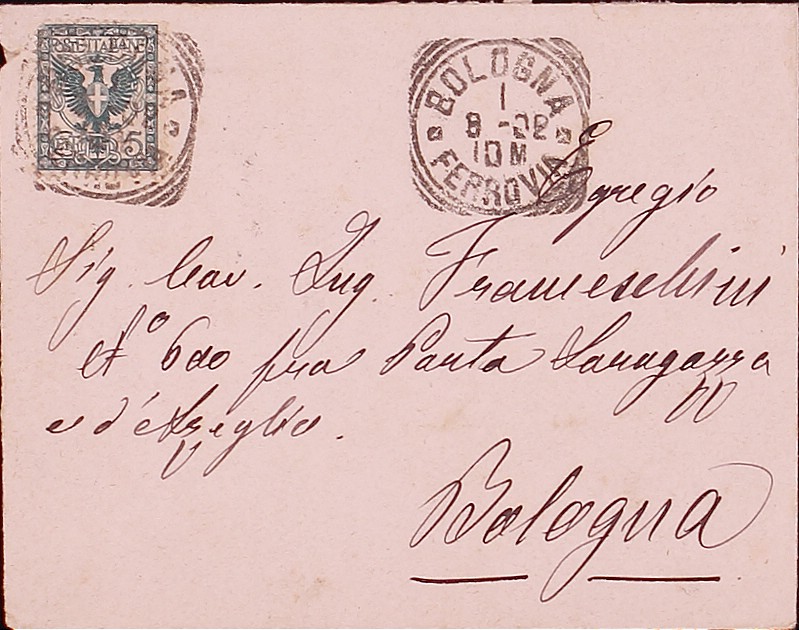 POSTE ITALIANE
5
BOLOGNA
1
8 - 02
10 M
FERROVIA
Egregio
Sig. Cav. Ing. Franceschini
N° 600 fra Porta Saragozza
e d'Azeglio.
Bologna